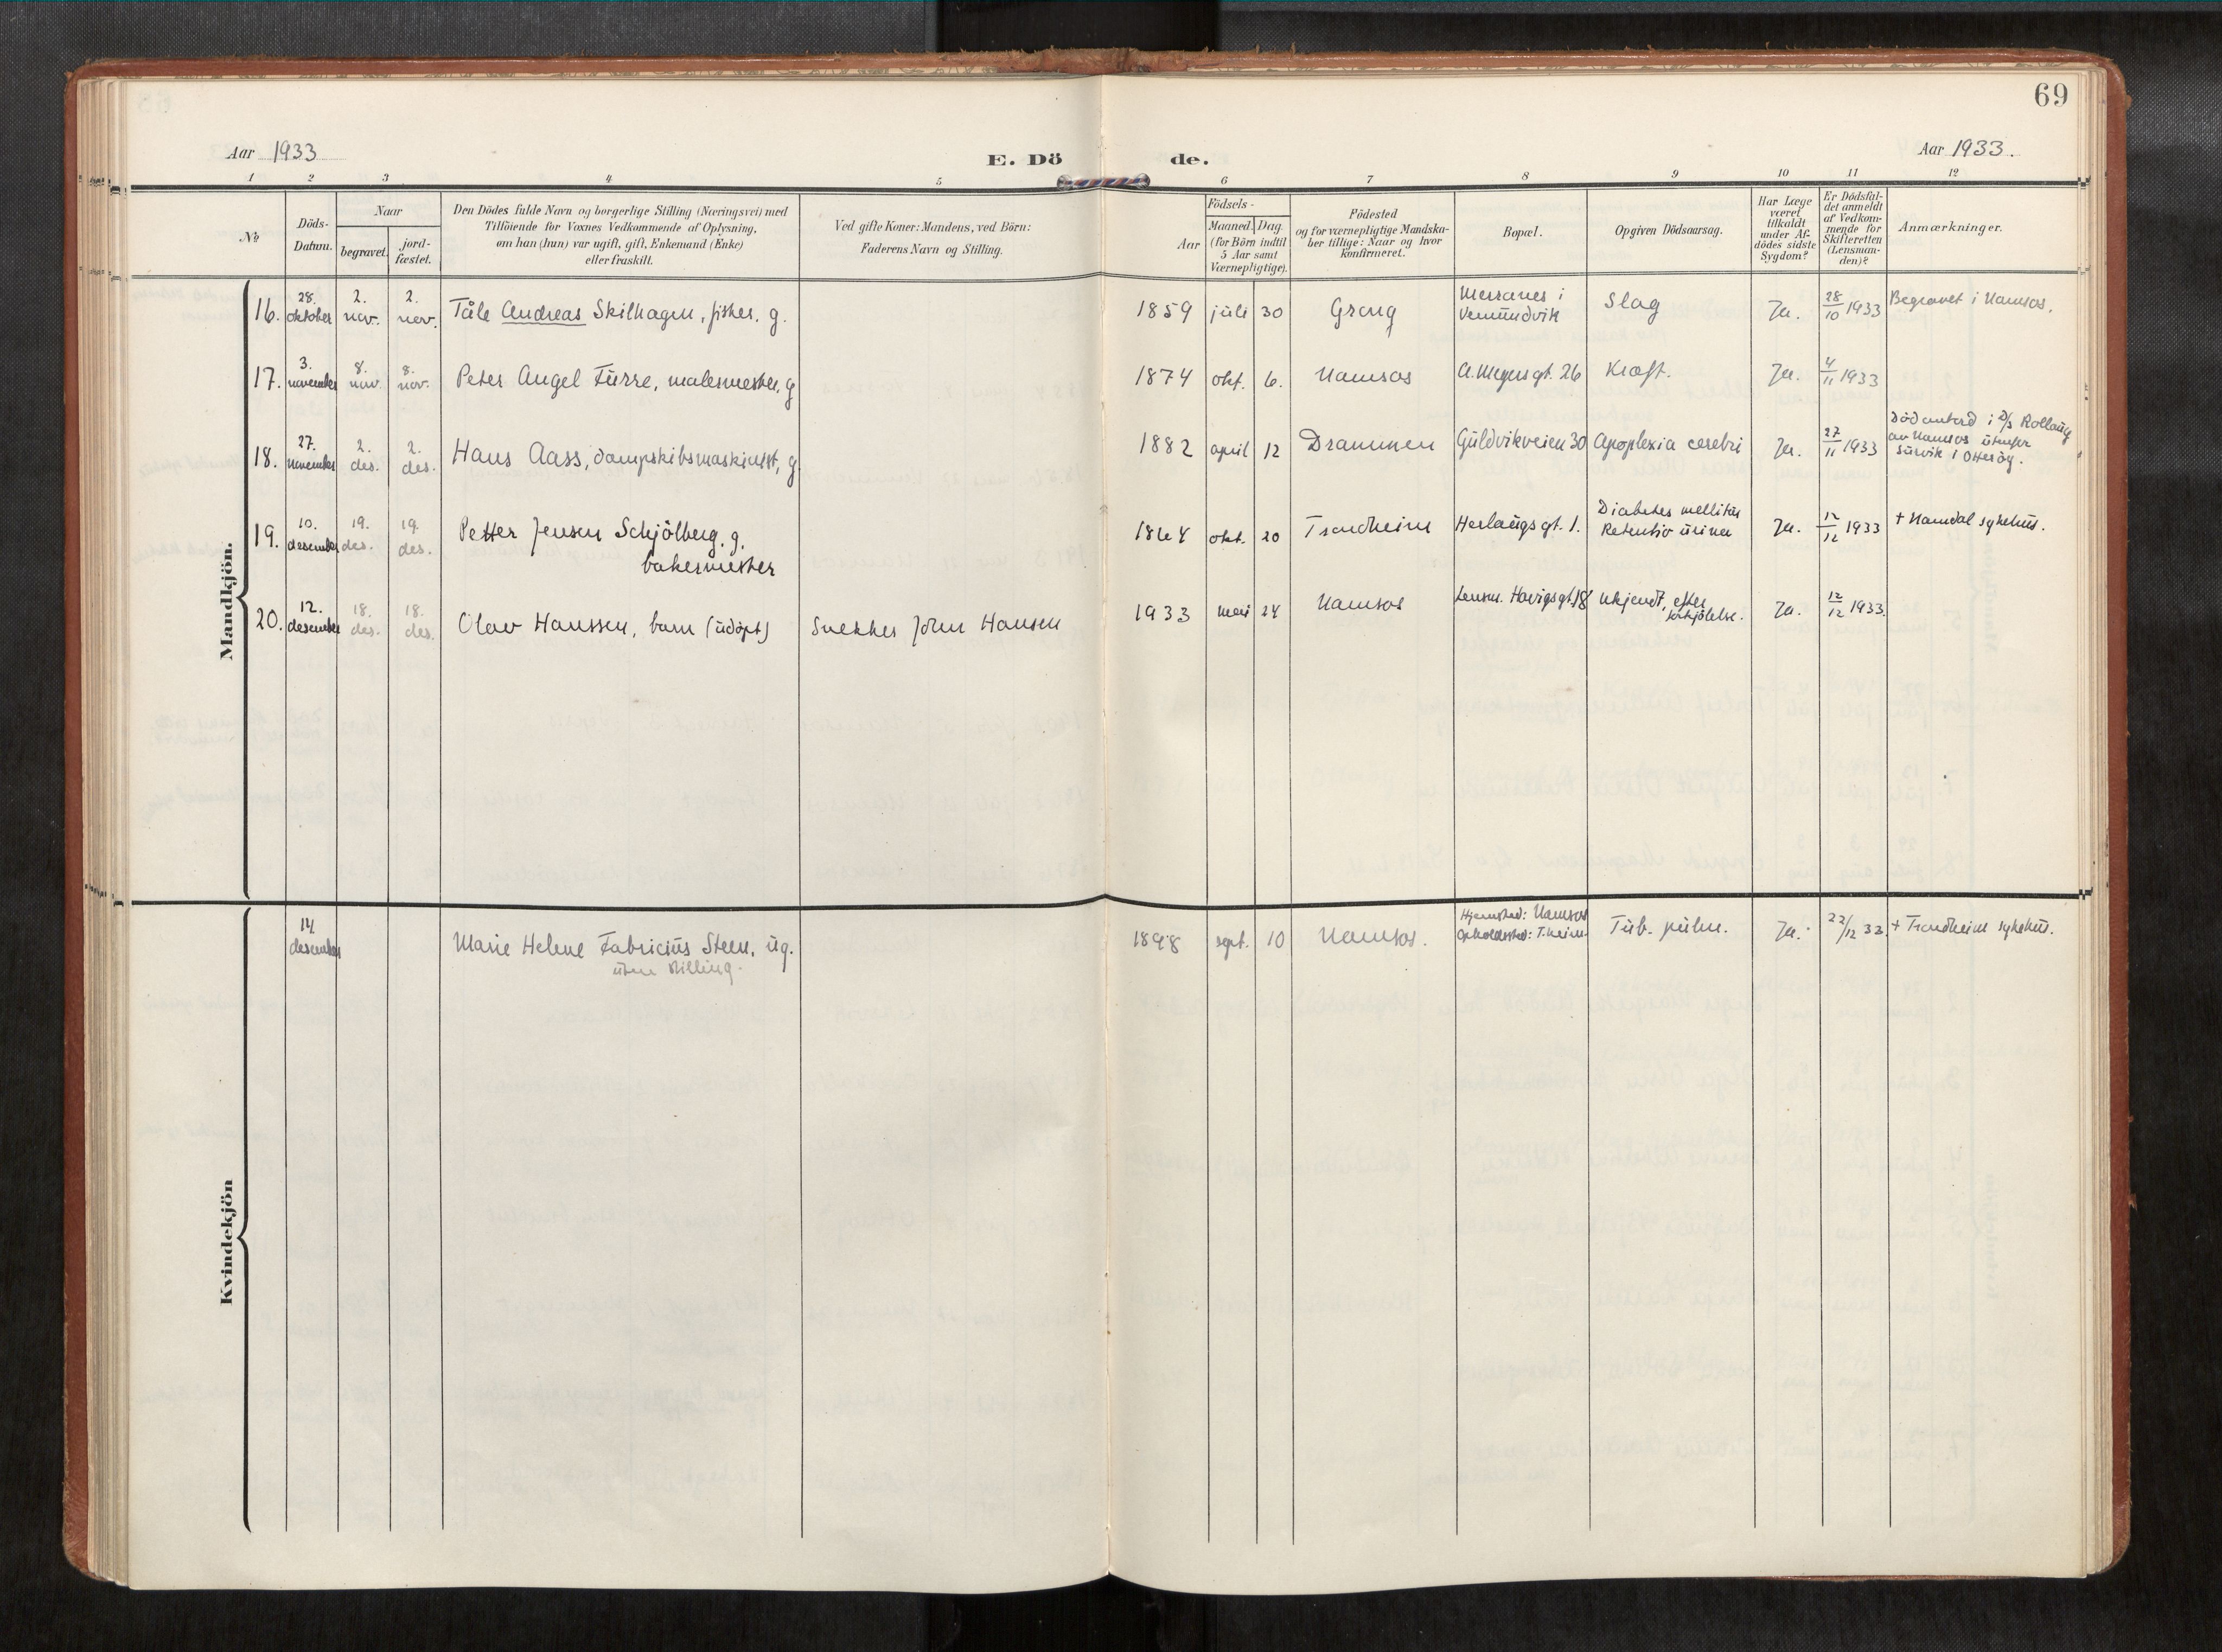 69
Aar 1933
E. Dö
de.
Aar 1933.
1 2 3 4 5 6 7 8 9 10 11 12
№
Döds-
Datum.
Naar
begravet.
jord-
fæstet.
Den Dödes fulde Navn og borgerlige Stilling (Næringsvei) med
Tilföiende for Voxnes Vedkommende af Oplysning,
om han (hun) var ugift, gift, Enkemand (Enke)
eller fraskilt.
Ved gifte Koner: Mandens, ved Börn:
Faderens Navn og Stilling.
Aar
Födsels-
Maaned. Dag.
(for Börn indtil
5 Aar samt
Værnepligtige).
Födested
og for værnepligtige Mandska-
ber tillige: Naar og hvor
konfirmeret.
Bopæl.
Opgiven Dödsaarsag.
Har Læge
været
tilkaldt
under Af-
dödes sidste
Sygdom?
Er Dödsfal-
det anmeldt
af Vedkom-
mende for
Skifteretten
(Lensman-
den)?
Anmærkninger.
Mandkjön.
16. 28. oktober 2. nov. 2. nov. Tåle Andreas Skilhagen, fisker, g. 1859 juli 30 Grong
Merranes i
Vemundvik
Slag Ja. 28/10 1933 Begravet i Namsos.
17. 3. november 8. nov. 8. nov. Peter Angel Furre, malermester, g 1874 okt. 6. Namsos A. Meyers gt. 26 Kræft. Ja. 4/11 1933
18. 27. november 2. des. 2. des. Hans Aass, dampskibsmaskinist, g 1882 april 12 Drammen Guldvikveien 30 Apoplexia cerebri Ja. 27/11 1933
Död ombord i D/S Rollaug
av Namsos utenfor
Survik i Otteröy.
19. 10. desember 19. des. 19. des. Petter Jensen Schjölberg. g.
bakermester
1864 okt. 20 Trondheim Herlaugs gt. 1.
Diabetes mellitus
Retentio urinae
Ja. 12/12 1933 + Namdal sykehus.
20. 12. desember 18. des. 18. des. Olav Hanssen, barn (udöpt) Snekker John Hansen 1933 mai 24 Namsos Lensm. Havigs gt. 18
ukjendt, efter
forkjölelse.
Ja. 12/12 1933.
Kvindekjön
14 desember Marie Helene Fabricius Steen, ug.
uten stilling.
1898 sept. 10 Namsos.
Hjemsted: Namsos
Opholdssted: T.heim.
Tub. pulm. Ja. 22/12 33. + Trondheim sykehus.